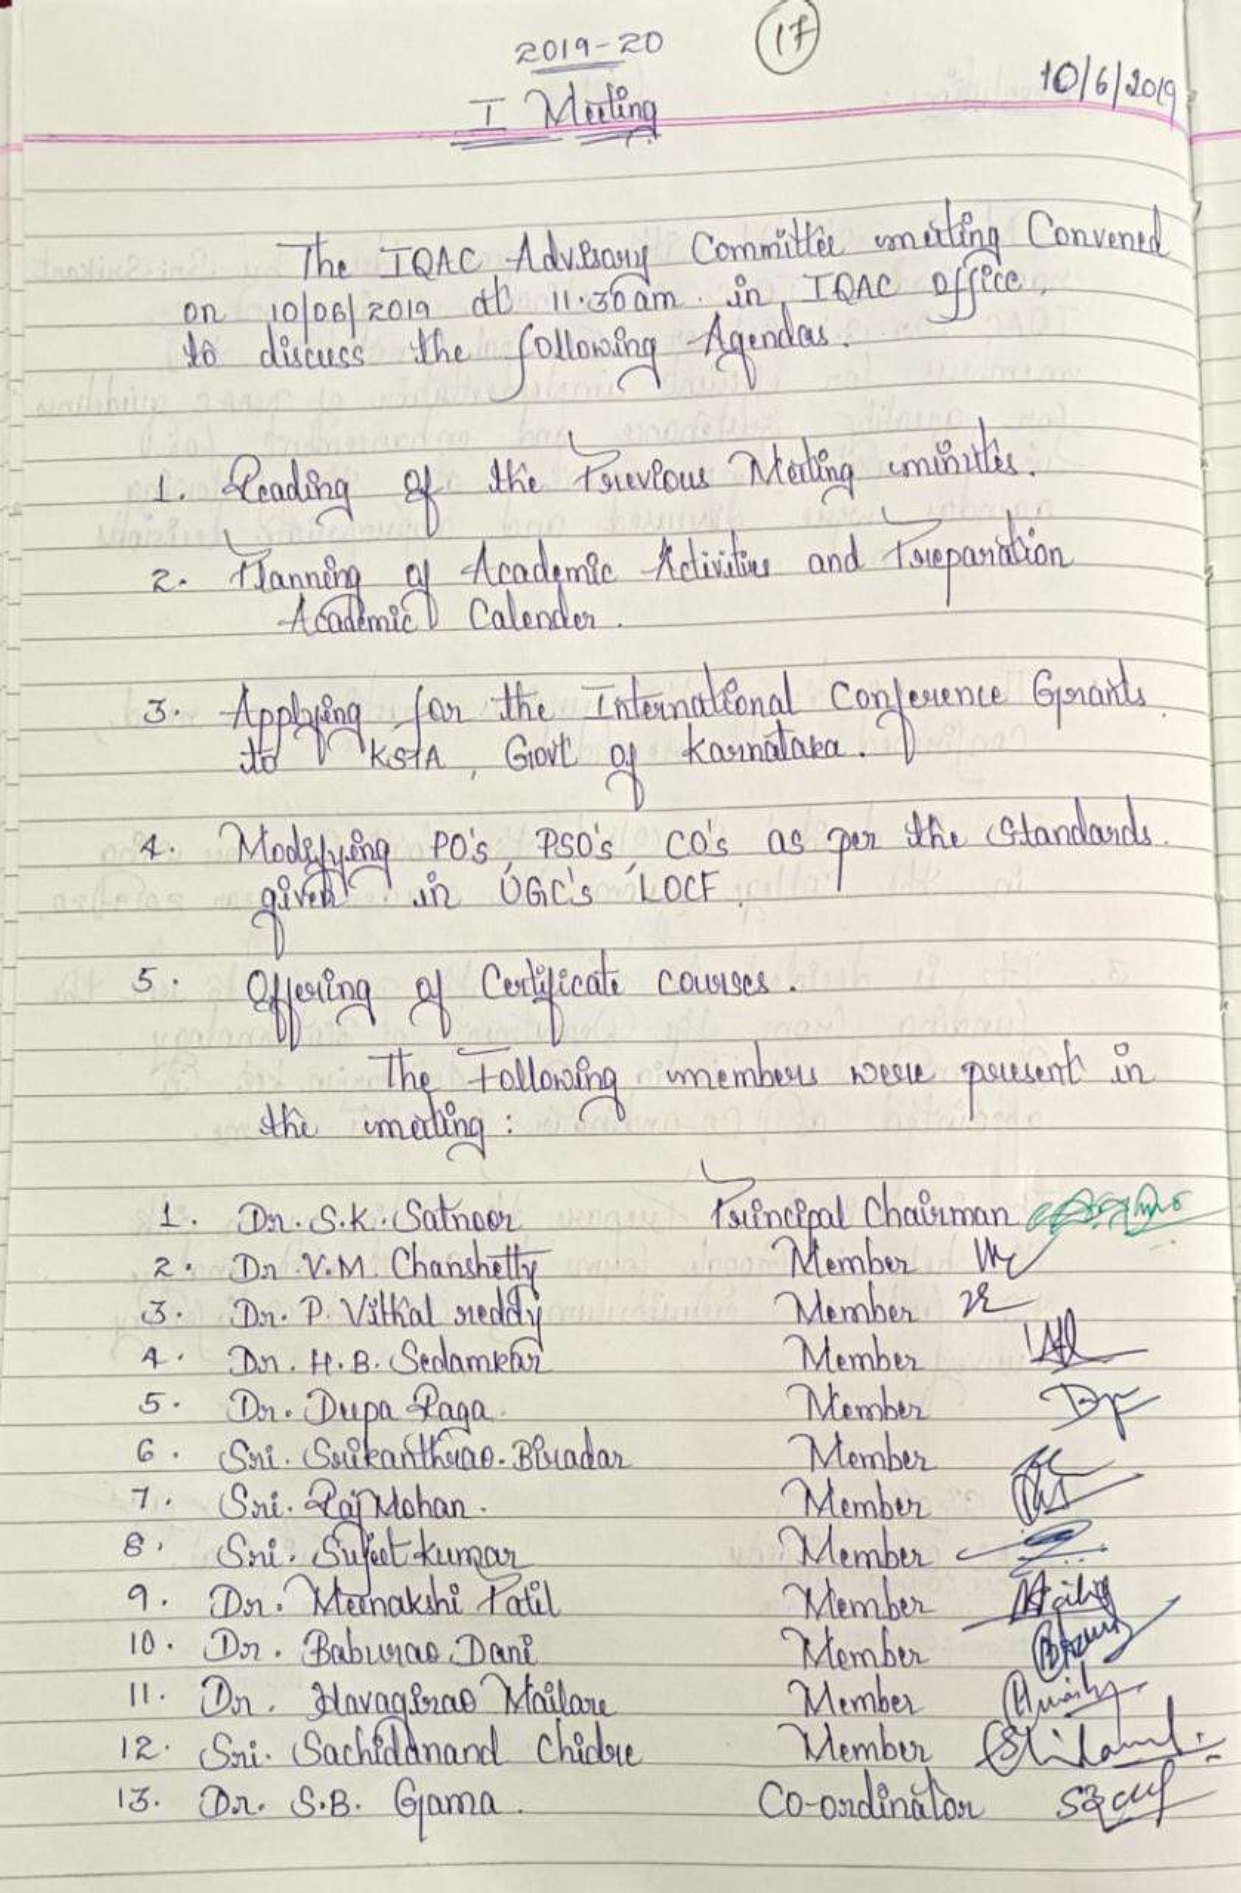 2019-20
17
10/6/2019
I Meeting
The IQAC Advisory Committee meeting Convened
on 10/06/2019 at 11.30am. in IQAC office,
to discuss the following Agendas.
1. Reading of the Previous Meeting minutes.
2. Planning of Academic Activities and Preparation
Academic Calender.
3. Applying for the International Conference Grants
to KSTA, Govt of Karnataka.
4. Modifying PO's, PSO's, CO's as per the Standards
given in UGC's LOCF.
5. Offering of Certificate courses.
The Following members were present in
the meeting:
1. Dr. S.K. Satnoor Principal Chairman
2. Dr. V.M. Chanshetty Member
3. Dr. P. Vithal reddy Member
4. Dr. H.B. Sedamkar Member
5. Dr. Deepa Raga. Member
6. Sri. Srikanthrao. Biradar Member
7. Sri. Raj Mohan. Member
8. Sri. Sujeet kumar Member
9. Dr. Meenakshi Patil Member
10. Dr. Baburao Dani Member
11. Dr. Havagirao Mailare Member
12. Sri. Sachidanand Chidre Member
13. Dr. S.B. Gama. Co-ordinator